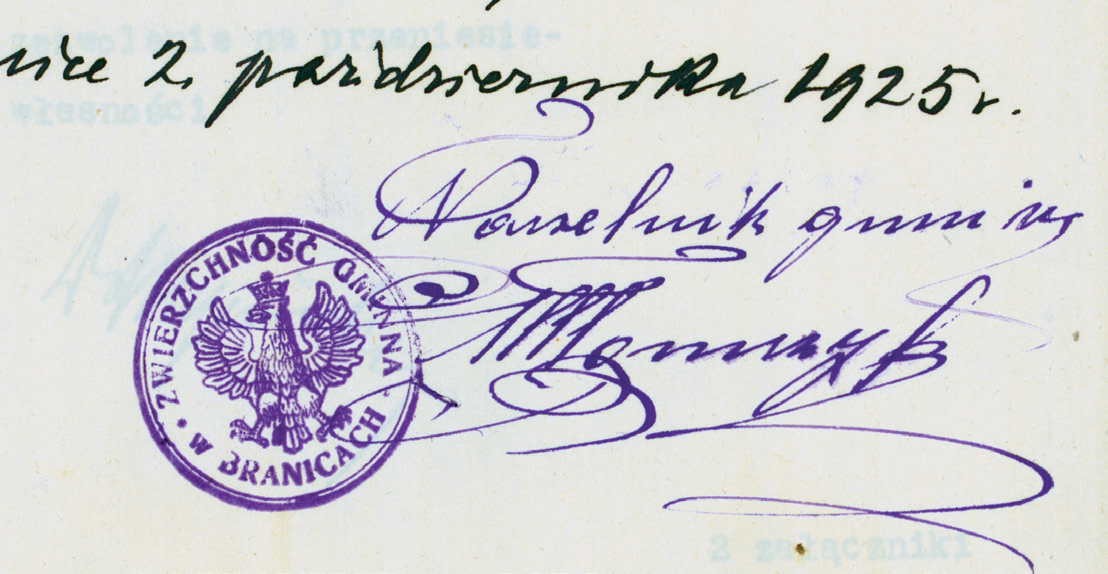 zezwolenie na przeniesie-
nice 2. października 1925 r.
własności
Naczelnik gminy
ZWIERZCHNOŚĆ GMINNA
W BRANICACH
2 załączniki